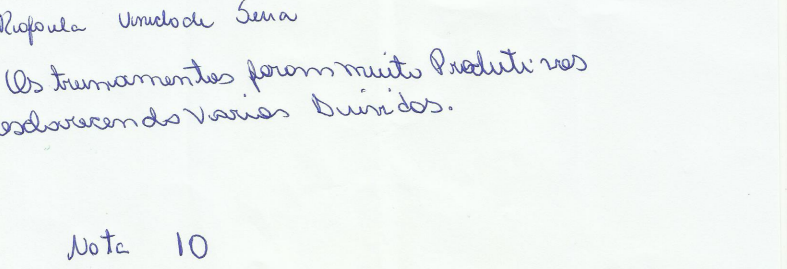 Riofoula Unidade Sena
Os treinamentos foram muito Produtivos
esclarecendo varias Duvidas.
Nota 10